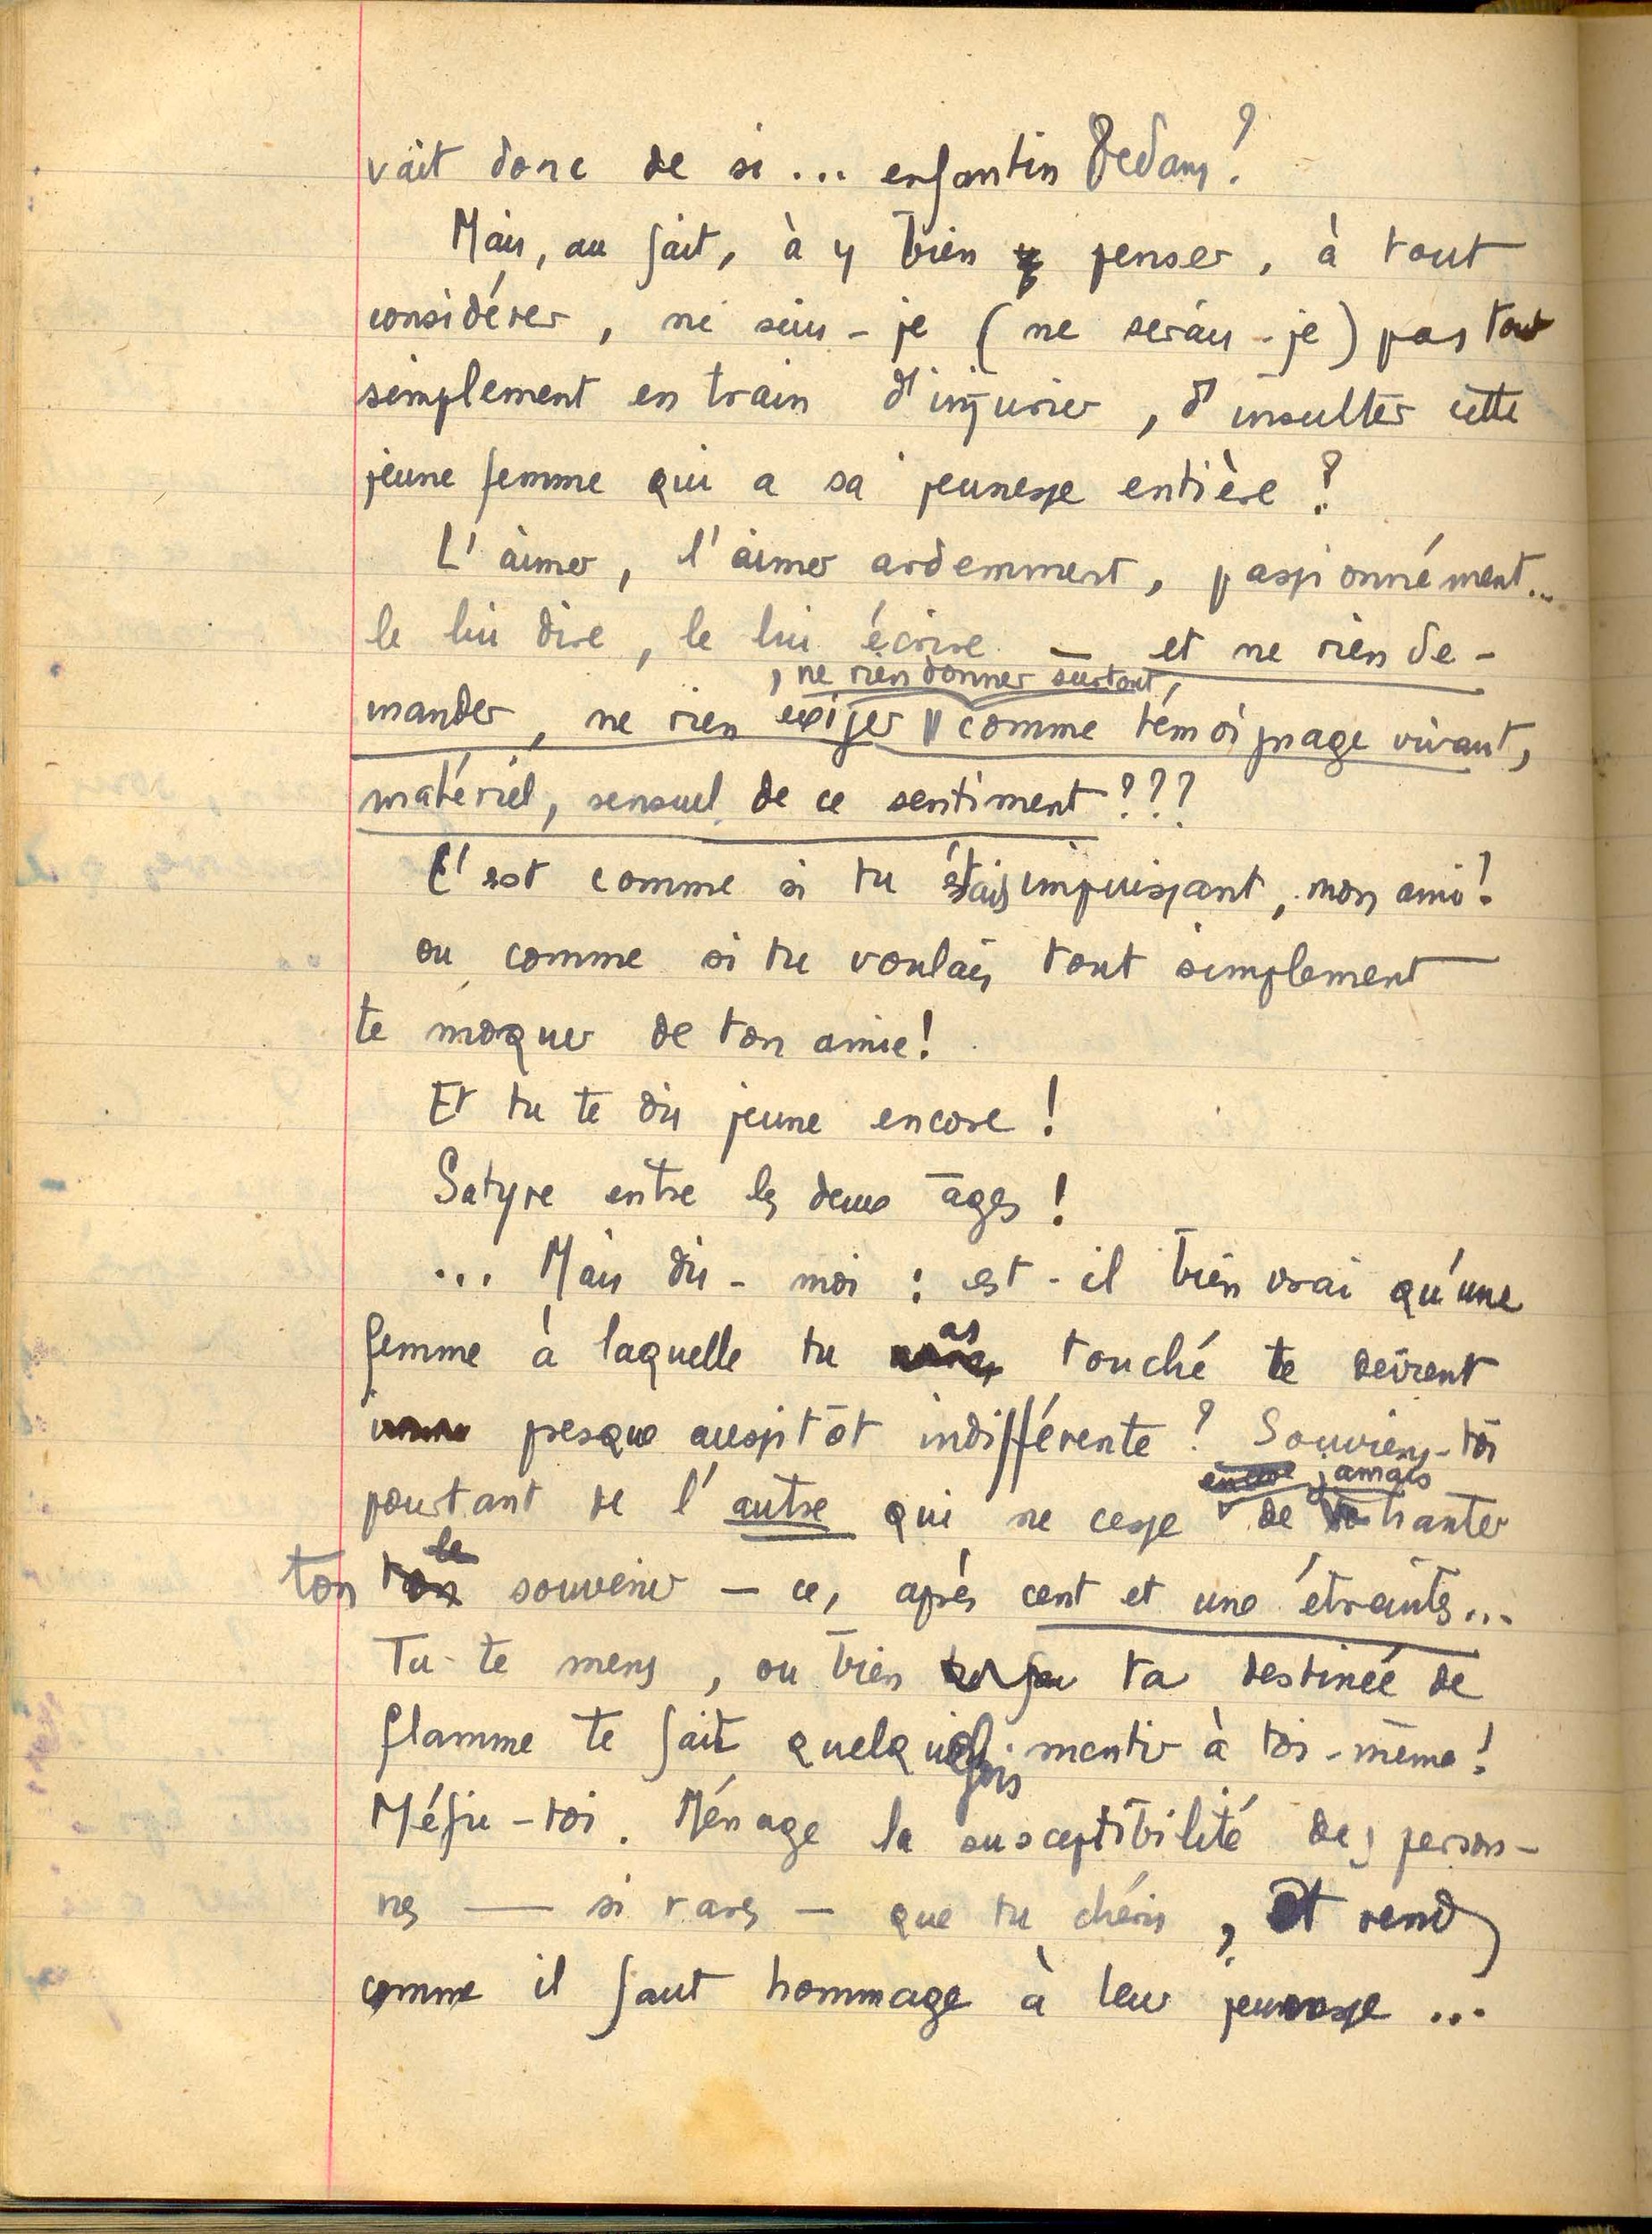 vait donc de si ... enfantin Dedans ?
Mais, au fait, à y bien penser, à tout
considérer, ne suis-je (ne serais-je) pas tout
simplement en train d'injurier, d'insulter cette
jeune femme qui a sa jeunesse entière ?
L'aimer, l'aimer ardemment, passionnément...
le lui dire, le lui écrire — et ne rien de-
, ne rien donner surtout,
mander, ne rien exiger comme témoignage vivant,
matériel, sensuel de ce sentiment ???
C'est comme si tu étais impuissant, mon ami !
ou comme si tu voulais tout simplement
te moquer de ton amie !
Et tu te dis jeune encore !
Satyre entre les deux âges !
... Mais dis-moi : est-il bien vrai qu'une
femme à laquelle tu as touché te devient
presque aussitôt indifférente ? Souviens-toi
encore jamais
pourtant de l'autre qui ne cesse de hanter
le
ton ton souvenir — ce, après cent et une étreintes...
Tu te mens, ou bien ta destinée de
flamme te fait quelquefois mentir à toi-même !
Méfie-toi. Ménage la susceptibilité des person-
nes — si rares — que tu chéris, et rends
comme il faut hommage à leur jeunesse ...